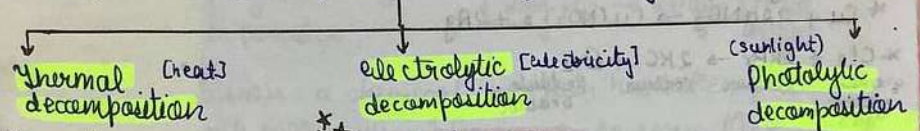 Thermal [heat]
decomposition
electrolytic [electricity]
decomposition
(sunlight)
Photolytic
decomposition